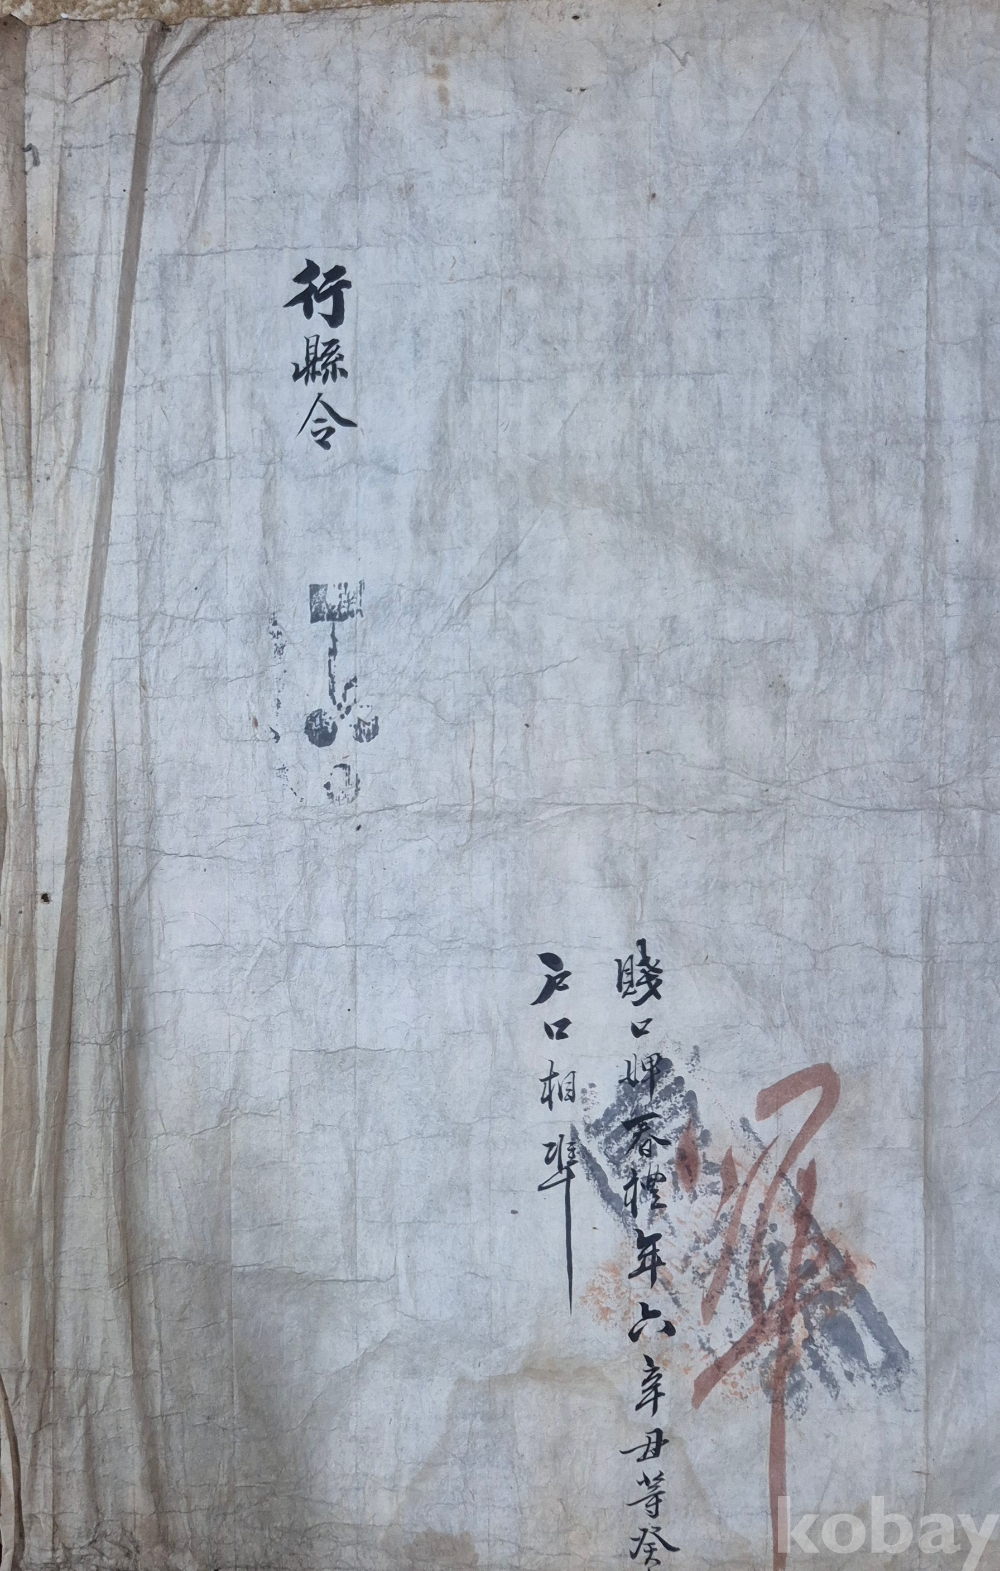 賤口婢春禮年六辛丑等癸
戶口相準
行縣令
kobay